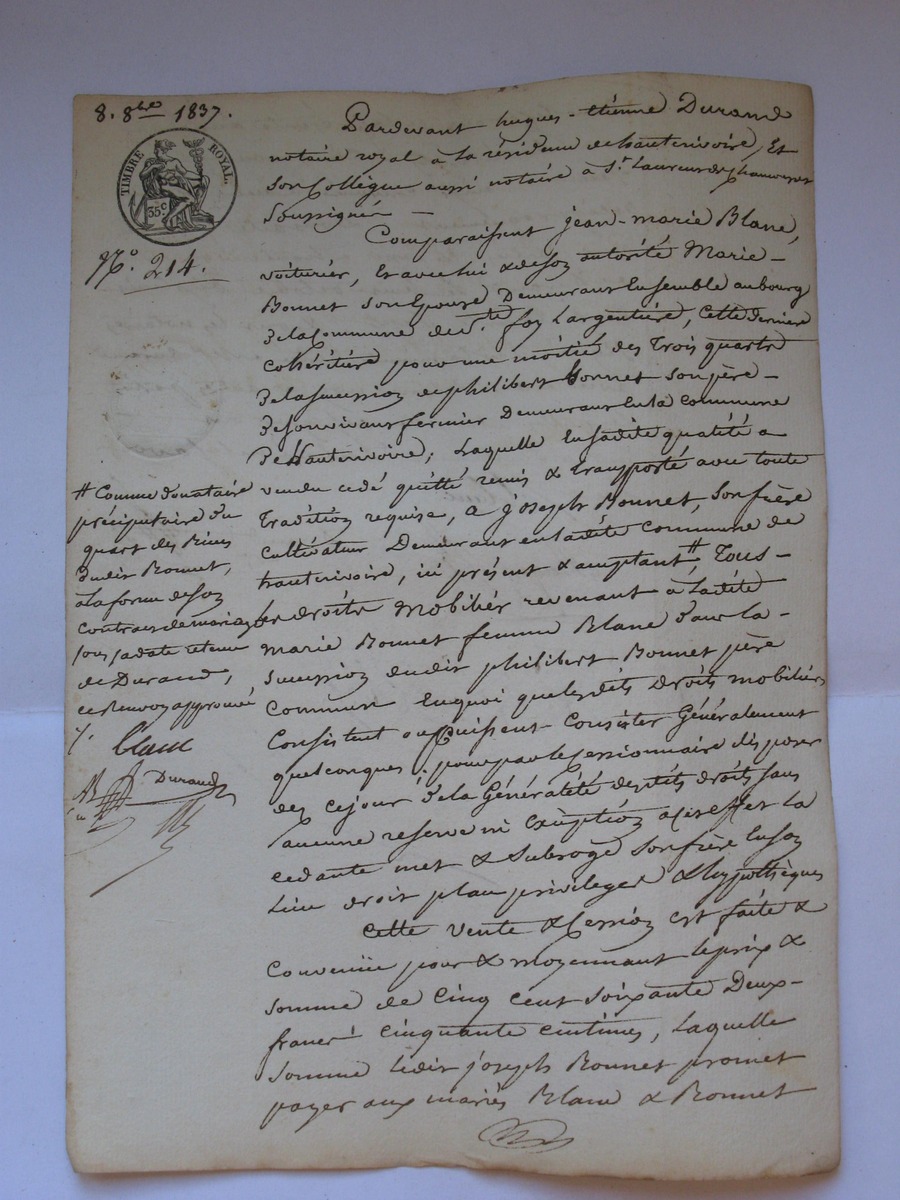 8. 8bre 1837.
TIMBRE ROYAL.
35c
No. 214.
Pardevant hugues-étienne Durand
notaire royal à la résidence de hauterivoire, Et
son Collègue aussi notaire à St. Laurent de Chamousset
Soussignés —
Comparaissent jean-marie Blanc,
voiturier, Et avec lui & de son autorité Marie-
Bonnet son Epouse Demeurant Ensemble au bourg
De la Commune de Ste. foy Largentière, cette dernière
cohéritière pour une moitié des Trois quarts
De la succession de philibert Bonnet son père -
De son vivant fermier Demeurant En la commune
De hauterivoire; Laquelle En sadite qualité a
vendu cédé quitté remis & transporté avec toute
Tradition requise, a joseph Bonnet, son frère
cultivateur Demeurant en ladite commune de
hauterivoire, ici présent & acceptant #, Tous-
les droits Mobiliers revenant à ladite
marie Bonnet femme Blanc dans la-
succession dudit philibert Bonnet père
commun En quoi que lesdits Droits mobiliers
Consistent ou Puissent Consister Généralement
quelconques; pour par le Cessionnaire disposer
dès ce jour De la Généralité desdits droits sans
aucune reserve ni Exception a cet effet la
cedante met & Subroge son frère En son
Lieu droit place privileges & hypothèques
Cette vente & Cession est faite &
Convenue pour & moyennant le prix &
somme de Cinq cent soixante Deux-
francs cinquante centimes, Laquelle
somme Ledit joseph Bonnet promet
payer aux mariés Blanc & Bonnet
# Comme donataire
préciputaire du
quart des Biens
dudit Bonnet,
a la forme de son
contrat de mariage
sous sa date retenu
de Durand,
ce Renvoy approuvé
Blanc
Durand